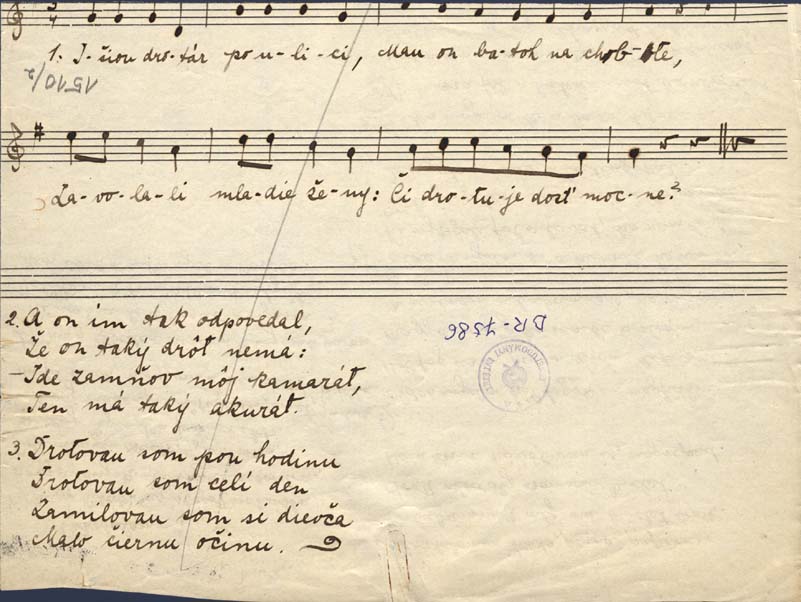 1. I-šiou dro-tár po u-li-ci, Mau on ba-toh na chrb-te,
1510/2
Za-vo-la-li mla-die že-ny: Či dro-tu-je dosť moc-ne?
2. A on im tak odpovedal,
Že on taký drôt nemá:
– Ide zamňov môj kamarát,
Ten má taký akurát.
BR-7586
3. Drotovau som pou hodinu
Drotovau som celí den
Zamilovau som si dievča
Malo čiernu očinu.